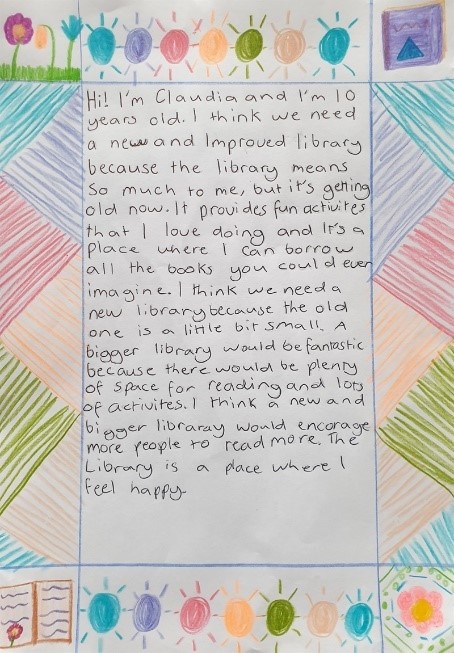 Hi! I'm Claudia and I'm 10
years old. I think we need
a new and Improved library
because the library means
So much to me, but it's getting
old now. It provides fun activites
that I love doing and It's a
Place where I can borrow
all the books you could ever
imagine. I think we need a
new library because the old
one is a little bit small. A
bigger library would be fantastic
because there would be plenty
of space for reading and lots
of activites. I think a new and
bigger libraray would encorage
more people to read more. The
Library is a place where I
feel happy.